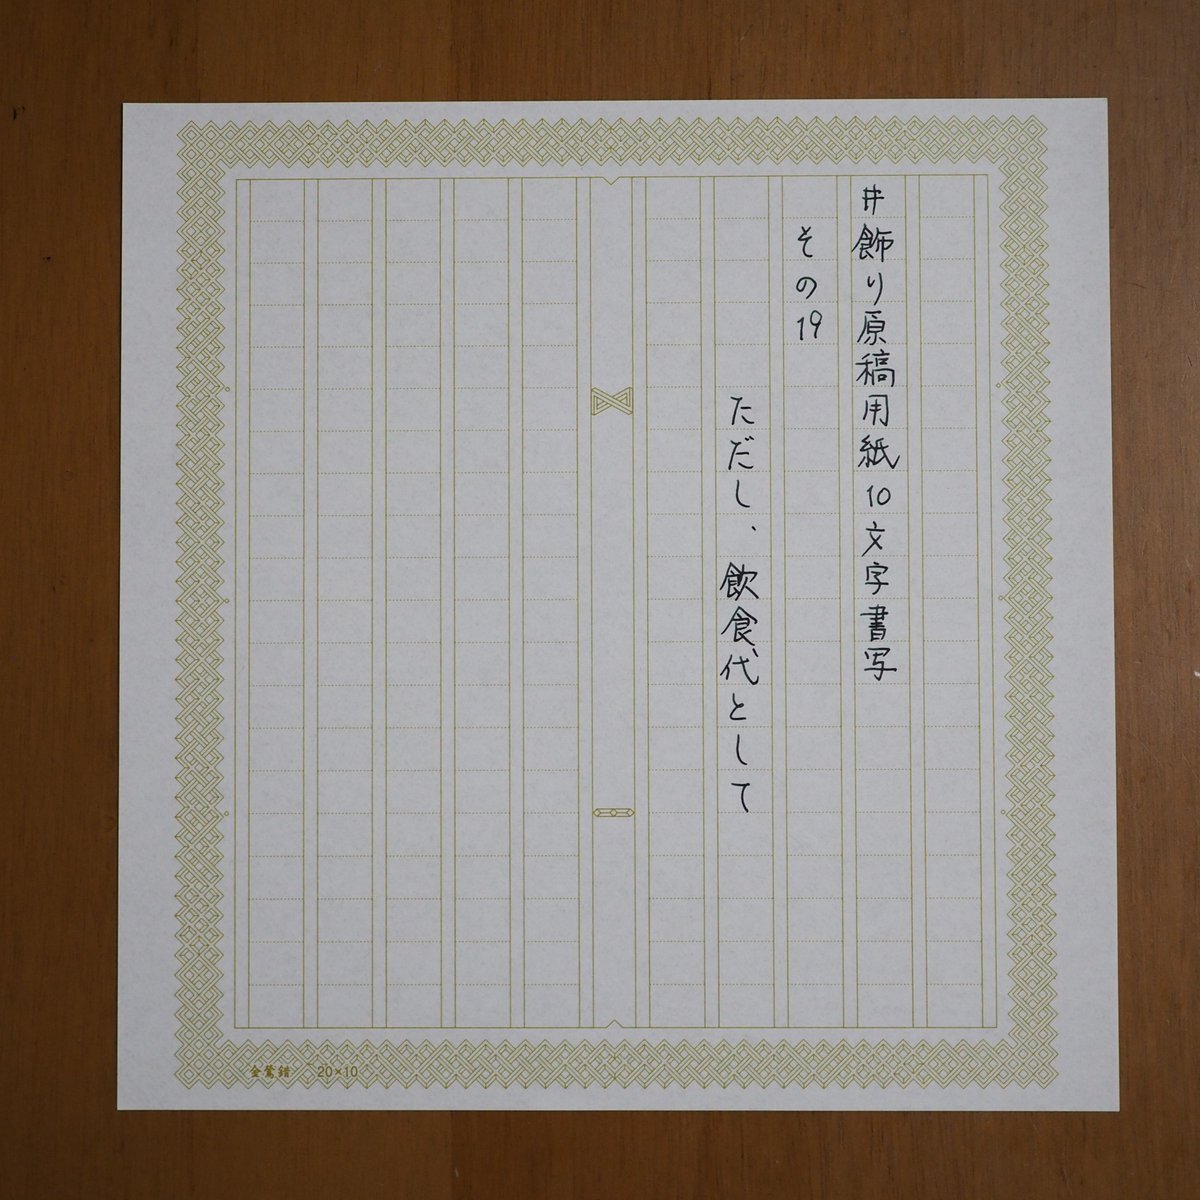 #飾り原稿用紙10文字書写
その19
ただし、飲食代として
金鶯錯 20×10